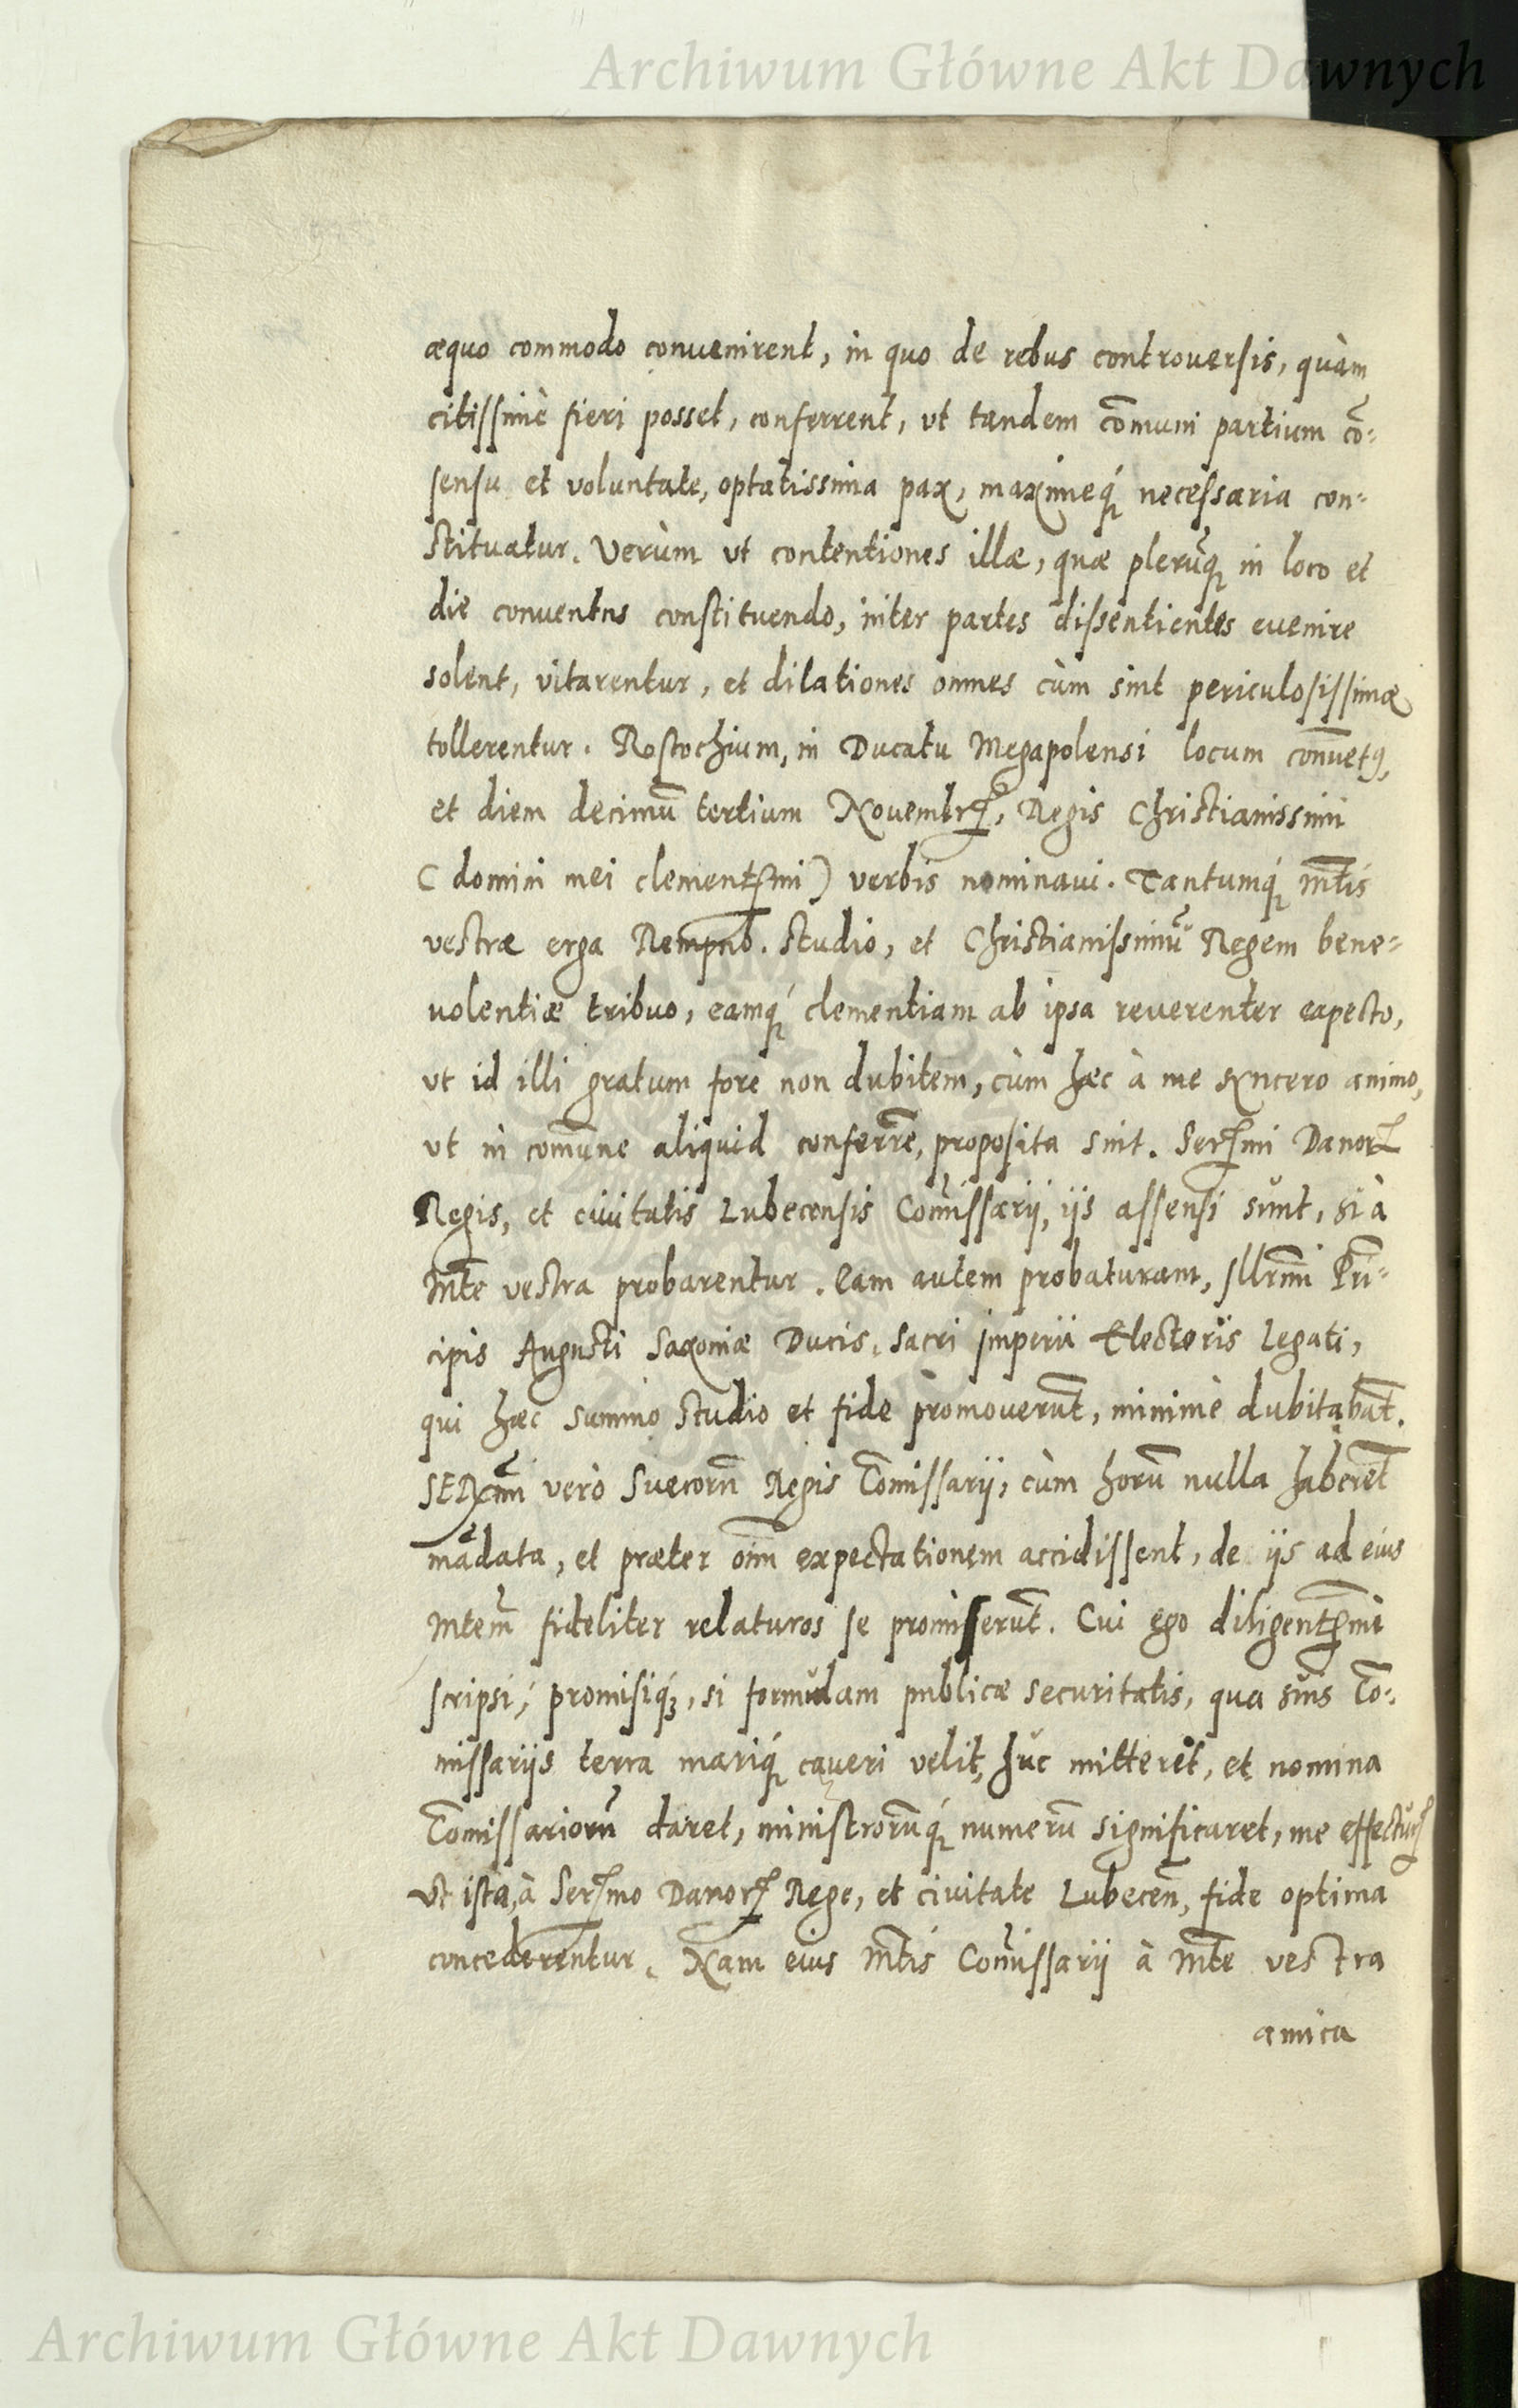 Archiwum Główne Akt Dawnych
æquo commodo conuenirent, in quo de rebus controuersis, quàm
citissimè fieri posset, conferrent, vt tandem com̄uni partium cō-
sensu et voluntate, optatissima pax, maximeq́ necessaria con-
stituatur. Verùm vt contentiones illæ, quæ plerūq in loco et
die conuentus constituendo, inter partes dissentientes euenire
solent, vitarentur, et dilationes omnes cùm sint periculosissimæ
tollerentur. Rostochium, in Ducatu Megapolensi locum conūetꝰ,
et diem decimū tertium Nouembrꝭ, Regis Christianissimi
(domini mei clementꝭmi) verbis nominaui. Tantumq́ Mtīs
vestræ erga Rempub. studio, et Christianissimū Regem bene-
uolentiæ tribuo, eamq́ clementiam ab ipsa reuerenter expecto,
vt id illi gratum fore non dubitem, cùm hæc à me syncero animo,
vt in com̄une aliquid conferrē, proposita sint. Serꝭmi Danorꝝ
Regis, et ciuitatis Lubecensis Com̄issarij, ijs assensi sunt, si à
Mtē vestra probarentur. Eam autem probaturam, Illrm̄i Prī-
cipis Augusti Saxoniæ Ducis, Sacri Imperii Electoris Legati,
qui hæc summo studio et fide promouerūt, minimè dubitabāt.
SERmī verò Suecorū Regis Com̄issarij, cùm horū nulla haberēt
mādata, et præter oīm expectationem accidissent, de ijs ad eius
Mtem̄ fideliter relaturos se promiserūt. Cui ego diligentꝭmè
scripsi, promisiq́, si formulam publicæ securitatis, qua suis Cō-
missarijs terra mariq́ caueri velit, huc mitteret, et nomina
Com̄issariorū daret, ministrorūq́ numerū significaret, me effecturū
vt ista, à Serꝭmo Danorꝝ Rege, et ciuitate Lubecen̄, fide optima
concederentur. Nam eius Mtīs Com̄issarij à Mtē vestra
amica
Archiwum Główne Akt Dawnych